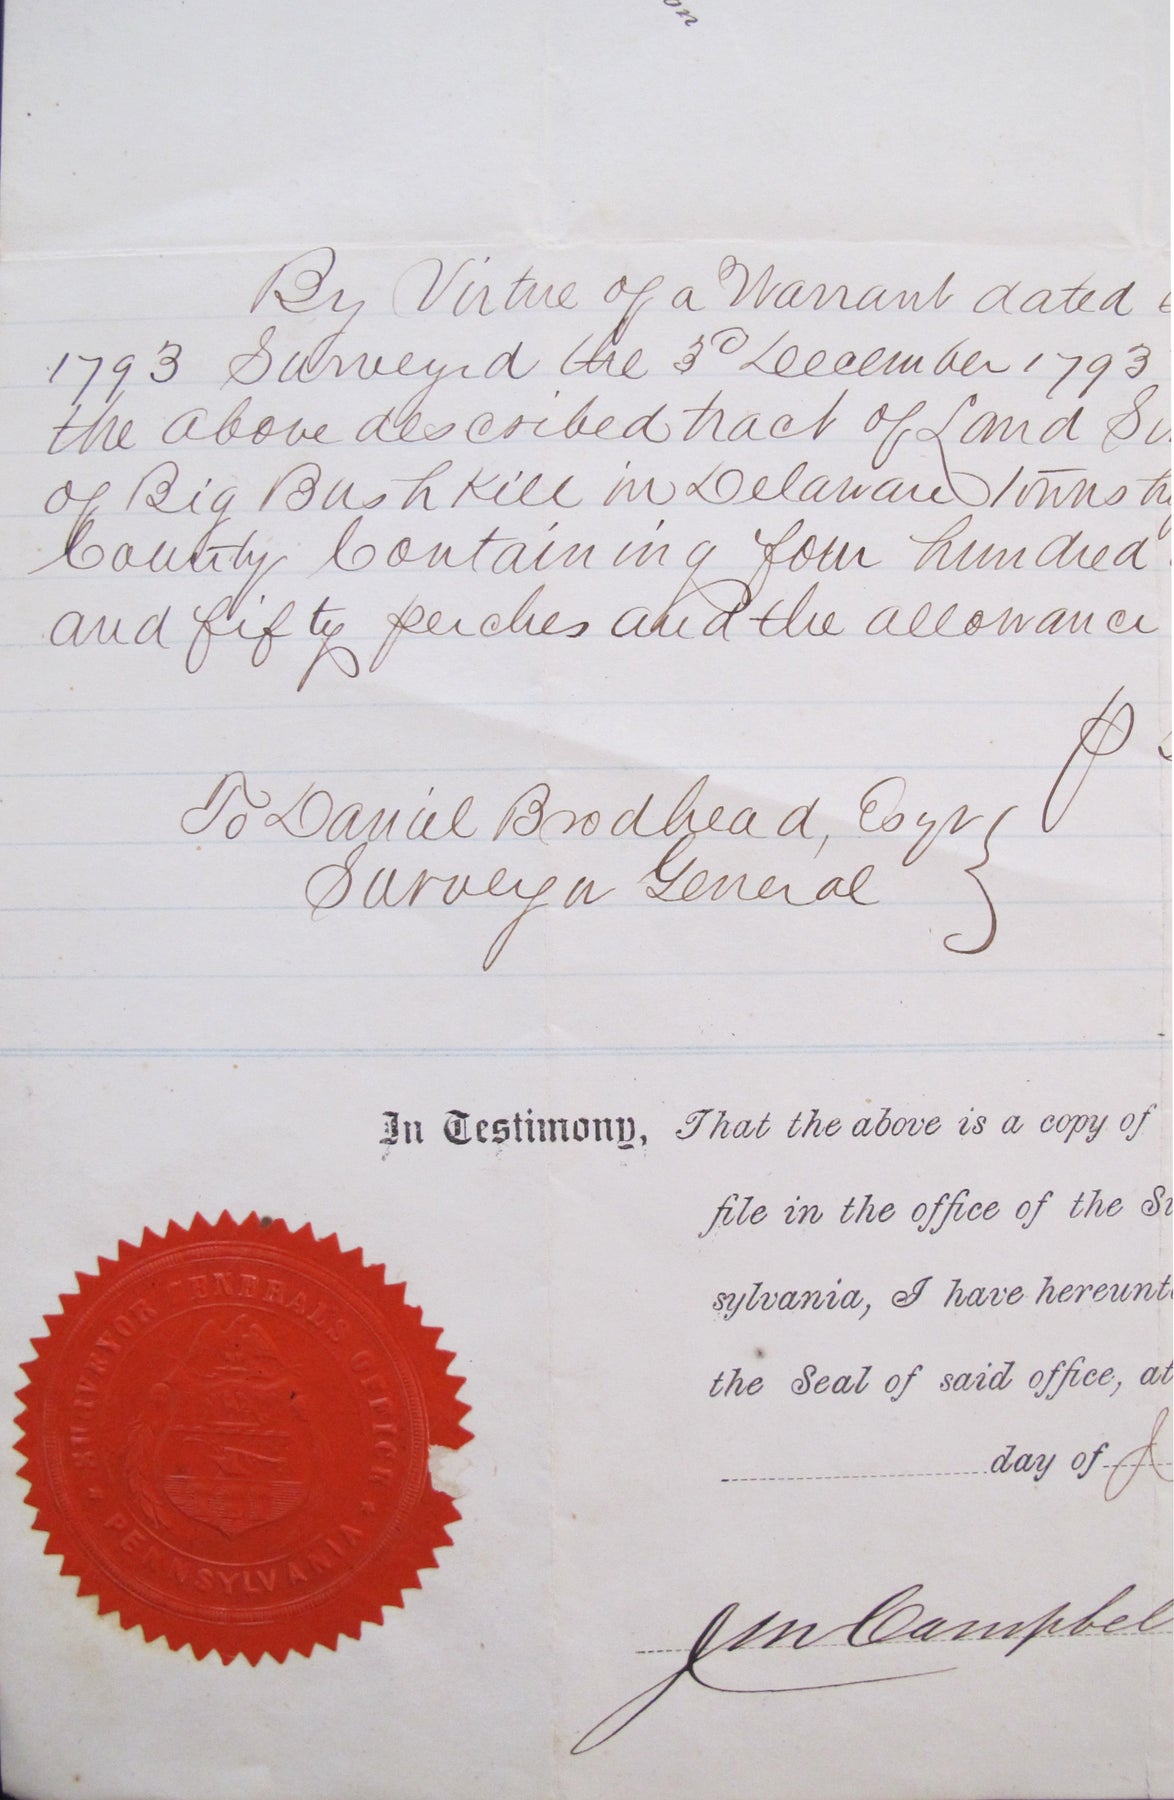 on
By Virtue of a Warrant dated
1793 Surveyed the 3d December 1793
the above described tract of Land
of Big Bush Kill in Delaware Townsh
County Containing four hundred
and fifty perches and the allowance
P
To Daniel Brodhead, Esqr
Surveyor General
In Testimony, That the above is a copy of
file in the office of the Su
sylvania, I have hereunto
the Seal of said office, at
day of J
SURVEYOR GENERALS OFFICE
PENNSYLVANIA
J M Campbel